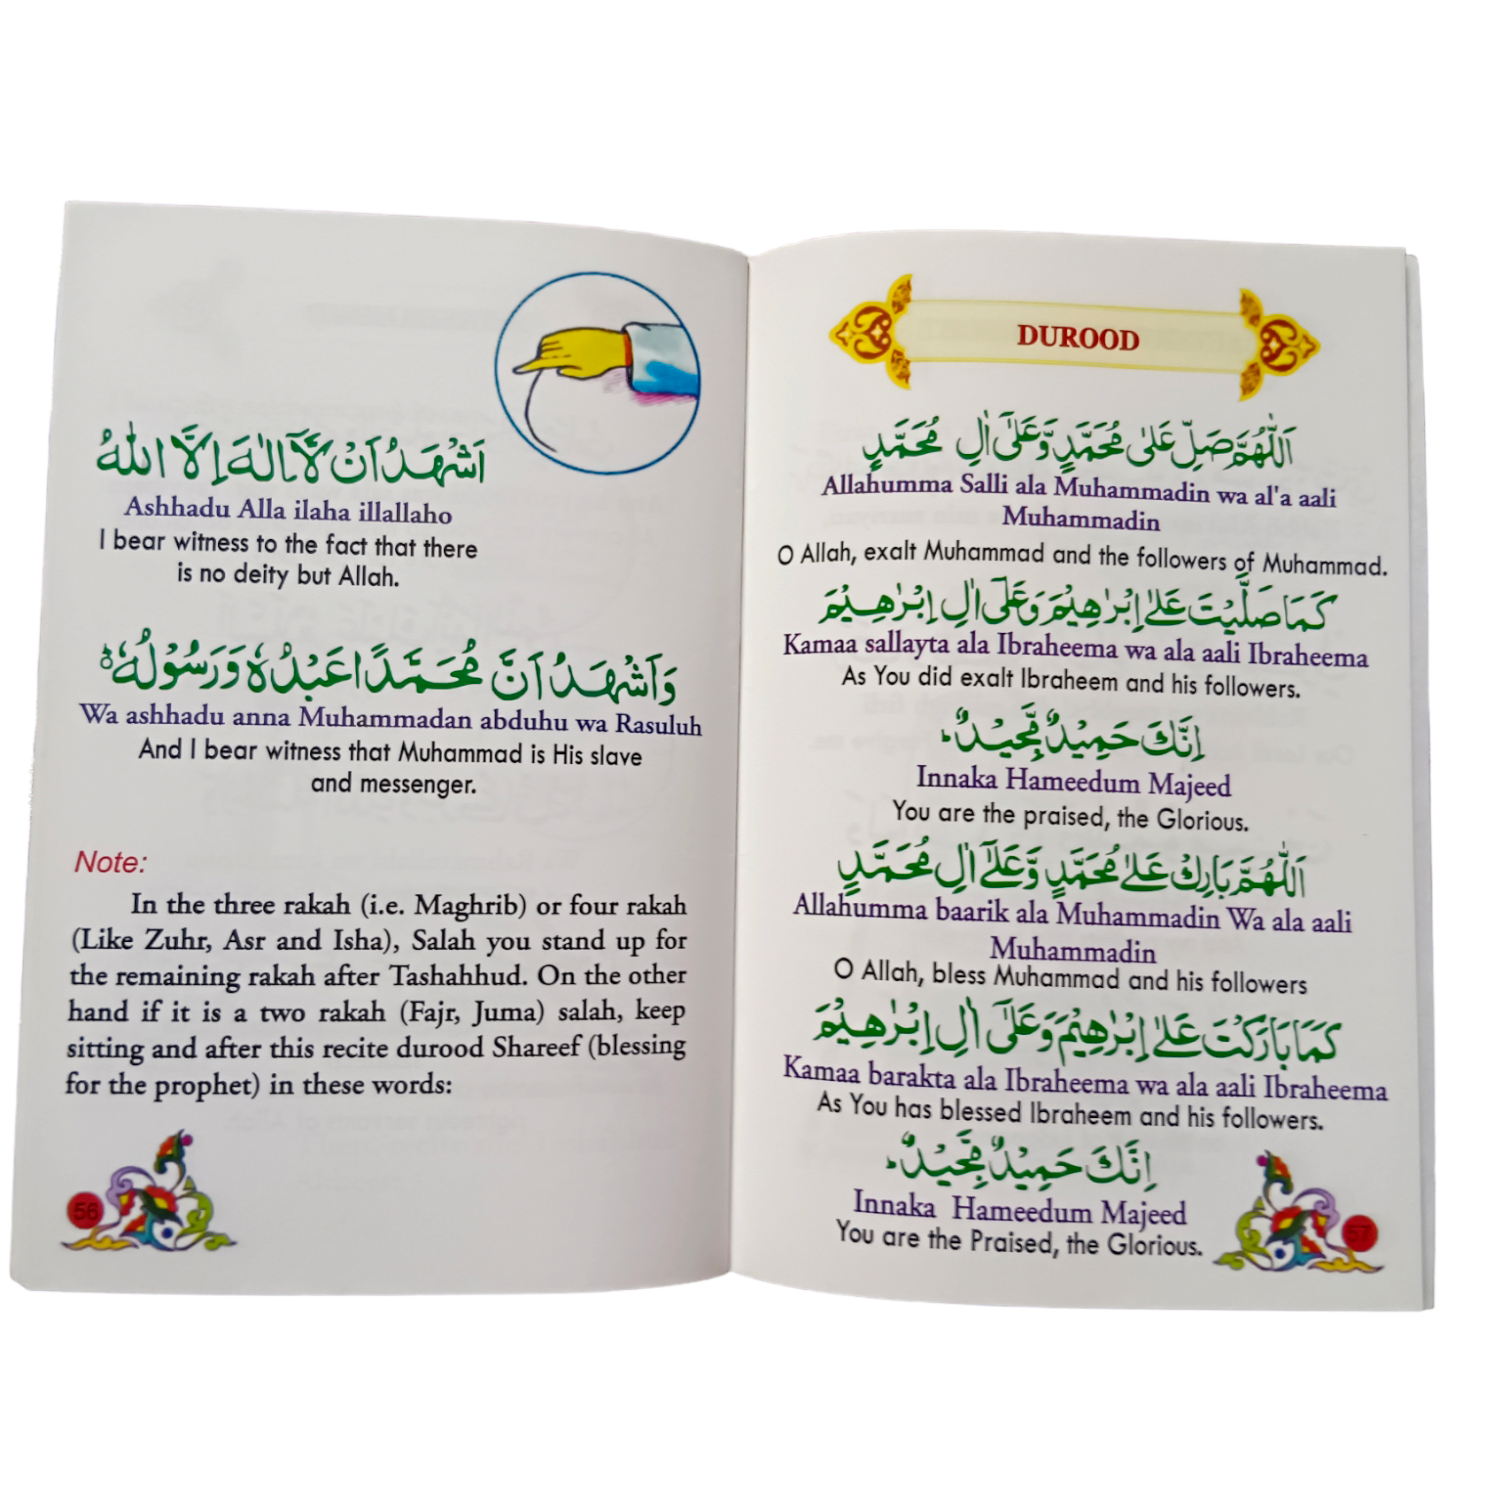 اَشْهَدُ اَنْ لَّآ اِلٰهَ اِلَّا اللّٰهُ
Ashhadu Alla ilaha illallaho
I bear witness to the fact that there
is no deity but Allah.
وَاَشْهَدُ اَنَّ مُحَمَّدًا عَبْدُهٗ وَرَسُوْلُهٗ ؕ
Wa ashhadu anna Muhammadan abduhu wa Rasuluh
And I bear witness that Muhammad is His slave
and messenger.
Note:
In the three rakah (i.e. Maghrib) or four rakah
(Like Zuhr, Asr and Isha), Salah you stand up for
the remaining rakah after Tashahhud. On the other
hand if it is a two rakah (Fajr, Juma) salah, keep
sitting and after this recite durood Shareef (blessing
for the prophet) in these words:
56
DUROOD
اَللّٰهُمَّ صَلِّ عَلٰى مُحَمَّدٍ وَّعَلٰٓى اٰلِ مُحَمَّدٍ
Allahumma Salli ala Muhammadin wa al'a aali
Muhammadin
O Allah, exalt Muhammad and the followers of Muhammad.
كَمَا صَلَّيْتَ عَلٰٓى اِبْرٰهِيْمَ وَعَلٰٓى اٰلِ اِبْرٰهِيْمَ
Kamaa sallayta ala Ibraheema wa ala aali Ibraheema
As You did exalt Ibraheem and his followers.
اِنَّكَ حَمِيْدٌ مَّجِيْدٌ ؕ
Innaka Hameedum Majeed
You are the praised, the Glorious.
اَللّٰهُمَّ بَارِكْ عَلٰى مُحَمَّدٍ وَّعَلٰٓى اٰلِ مُحَمَّدٍ
Allahumma baarik ala Muhammadin Wa ala aali
Muhammadin
O Allah, bless Muhammad and his followers
كَمَا بَارَكْتَ عَلٰٓى اِبْرٰهِيْمَ وَعَلٰٓى اٰلِ اِبْرٰهِيْمَ
Kamaa barakta ala Ibraheema wa ala aali Ibraheema
As You has blessed Ibraheem and his followers.
اِنَّكَ حَمِيْدٌ مَّجِيْدٌ ؕ
Innaka Hameedum Majeed
You are the Praised, the Glorious.
57